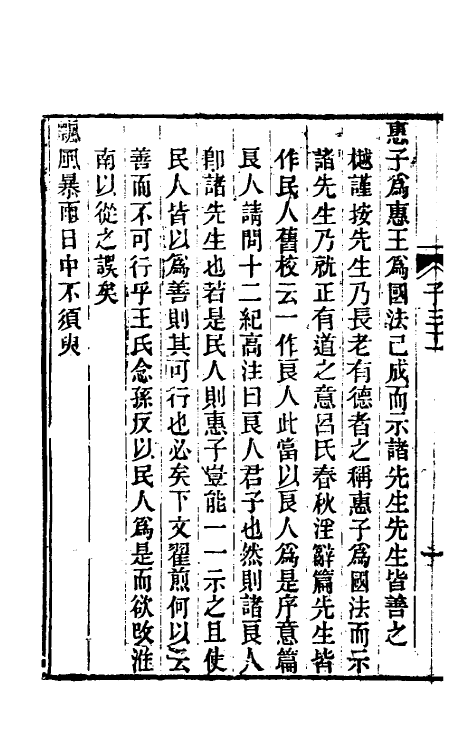 惠子爲惠王爲國法已成而示諸先生先生皆善之
樾謹按先生乃長老有德者之稱惠子爲國法而示
諸先生乃就正有道之意呂氏春秋淫辭篇先生皆
作民人舊校云一作良人此當以良人爲是序意篇
良人請問十二紀高注曰良人君子也然則諸良人
卽諸先生也若是民人則惠子豈能一一示之且使
民人皆以爲善則其可行也必矣下文翟煎何以云
善而不可行乎王氏念孫反以民人爲是而欲改淮
南以從之誤矣
飄風暴雨日中不須臾
子三十
十